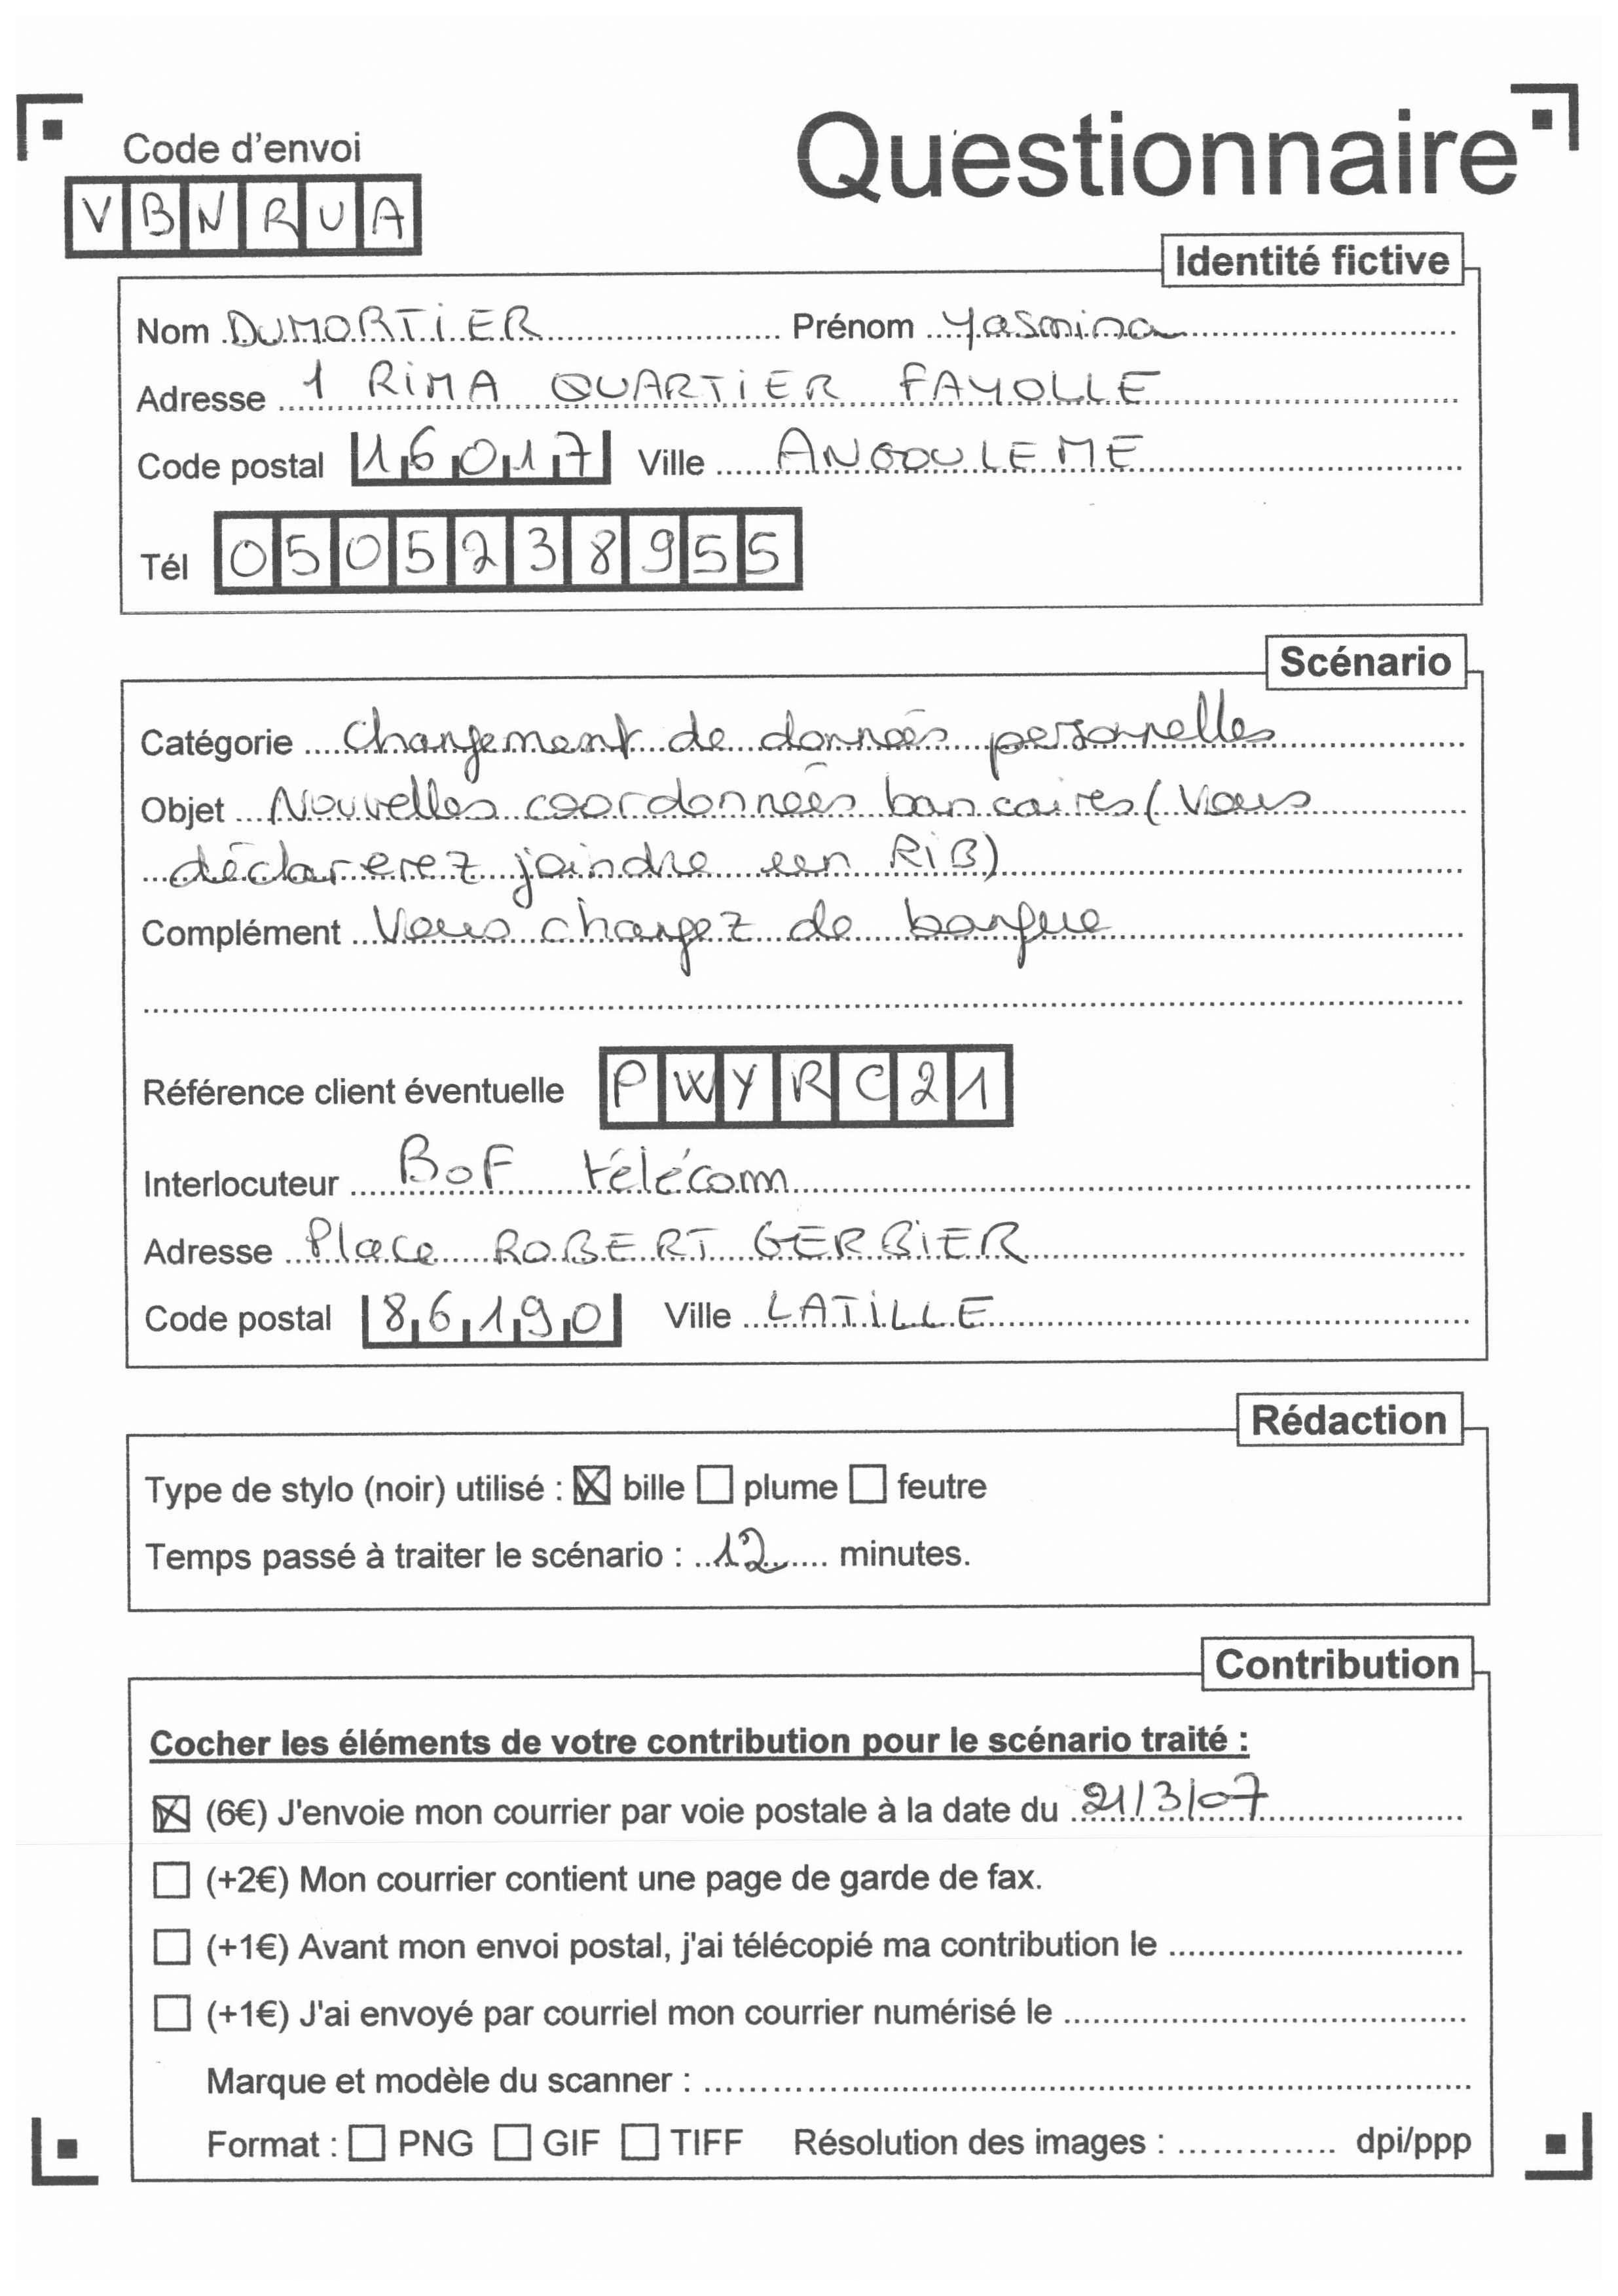 Code d'envoi
Questionnaire
VBNRUA
Identité fictive
Nom DUMORTIER Prénom Yasmina
Adresse 1 RIMA QUARTIER FAYOLLE
Code postal 16017 Ville ANGOULEME
Tél 0505238955
Scénario
Catégorie Changement de données personnelles
Objet Nouvelles coordonnées bancaires (Vous
déclarerez joindre un RIB)
Complément Vous changez de banque
Référence client éventuelle PWYRC21
Interlocuteur BoF télécom
Adresse Place ROBERT GERBIER
Code postal 86190 Ville LATILLE
Rédaction
Type de stylo (noir) utilisé : ☒ bille ☐ plume ☐ feutre
Temps passé à traiter le scénario : 12 minutes.
Contribution
Cocher les éléments de votre contribution pour le scénario traité :
☒ (6€) J'envoie mon courrier par voie postale à la date du 21/3/07
☐ (+2€) Mon courrier contient une page de garde de fax.
☐ (+1€) Avant mon envoi postal, j'ai télécopié ma contribution le
☐ (+1€) J'ai envoyé par courriel mon courrier numérisé le
Marque et modèle du scanner :
Format : ☐ PNG ☐ GIF ☐ TIFF Résolution des images : dpi/ppp